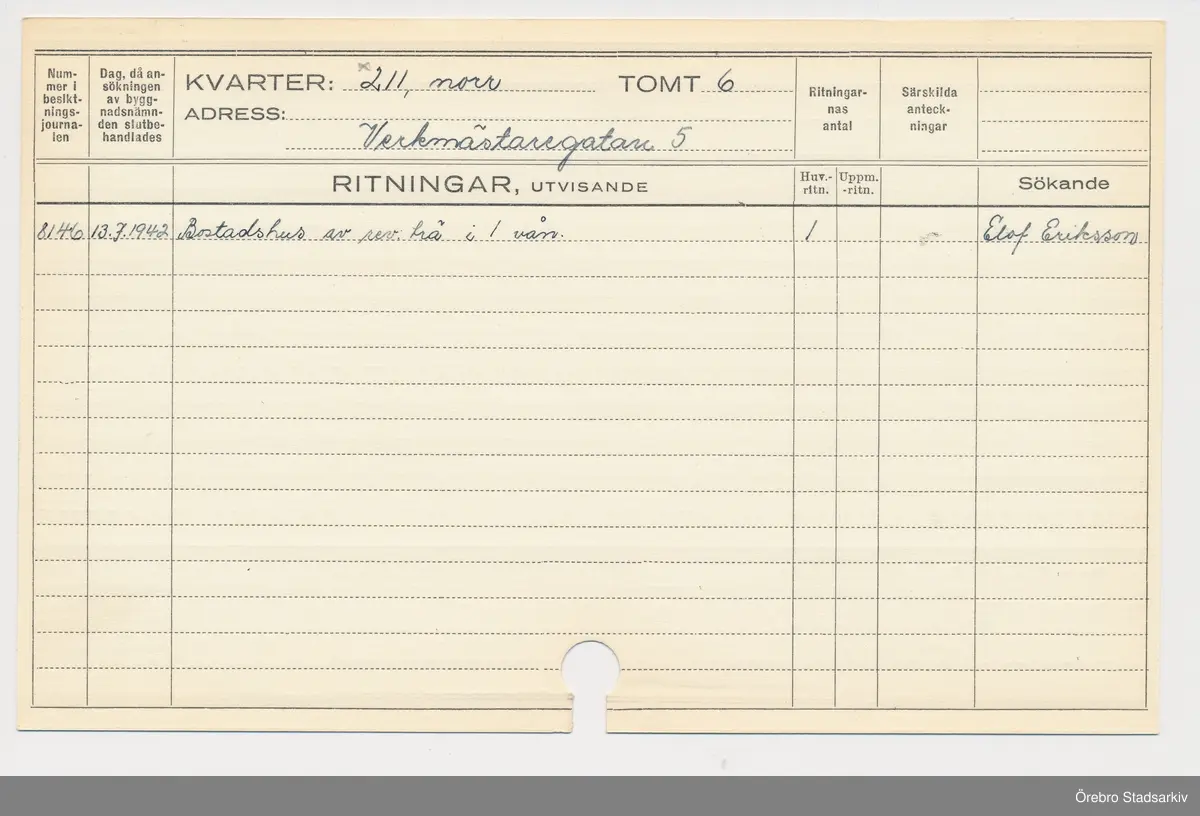 Num-
mer i
besikt-
nings-
journa-
len
Dag, då an-
sökningen
av bygg-
nadsnämn-
den slutbe-
handlades
KVARTER: x 211, norr TOMT 6
ADRESS:
Verkmästaregatan 5
Ritningar-
nas
antal
Särskilda
anteck-
ningar
RITNINGAR, UTVISANDE
Huv.-
ritn.
Uppm.
-ritn.
Sökande
8146 13.7.1942 Bostadshus av rev. trä i 1 vån. 1 Elof Eriksson
Örebro Stadsarkiv